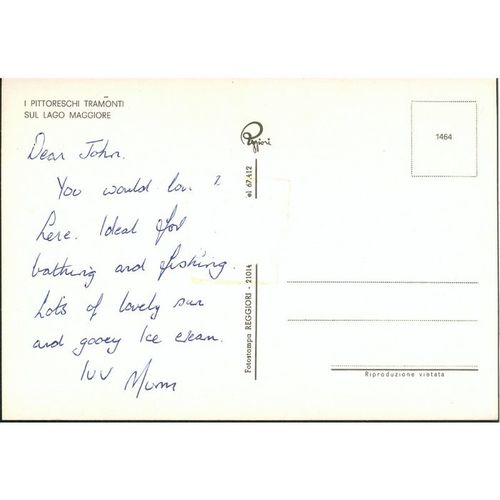 I PITTORESCHI TRAMONTI
SUL LAGO MAGGIORE
Dear John.
You would lov
here. Ideal for
bathing and fishing.
Lots of lovely sun
and gooey Ice cream.
luv Mum
Reggiori
Fotostampa REGGIORI - 21014
el 67.412
1464
Riproduzione vietata